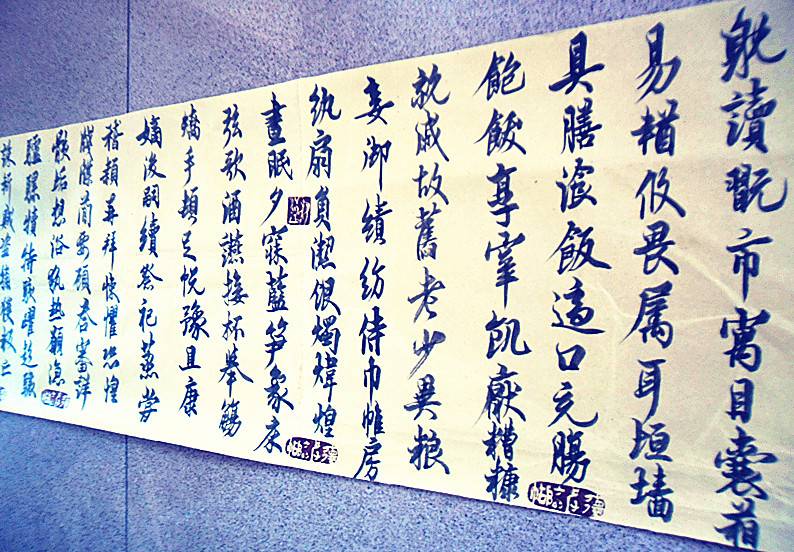 躭讀翫市寓目囊箱
易輶攸畏属耳垣墙
具膳湌飯適口充腸
飽飫享宰飢厭糟糠
親戚故舊老少異粮
妾御績紡侍巾帷房
紈扇員潔銀燭煒煌
晝眠夕寐藍笋象床
弦歌酒讌接杯舉觴
矯手頓足悅豫且康
嫡後嗣續祭祀蒸嘗
稽顙再拜悚懼恐惶
牋牒簡要顧答審詳
骸垢想浴執熱願凉
驢騾犢特駭躍超驤
誅斬賊盗捕獲叛亡